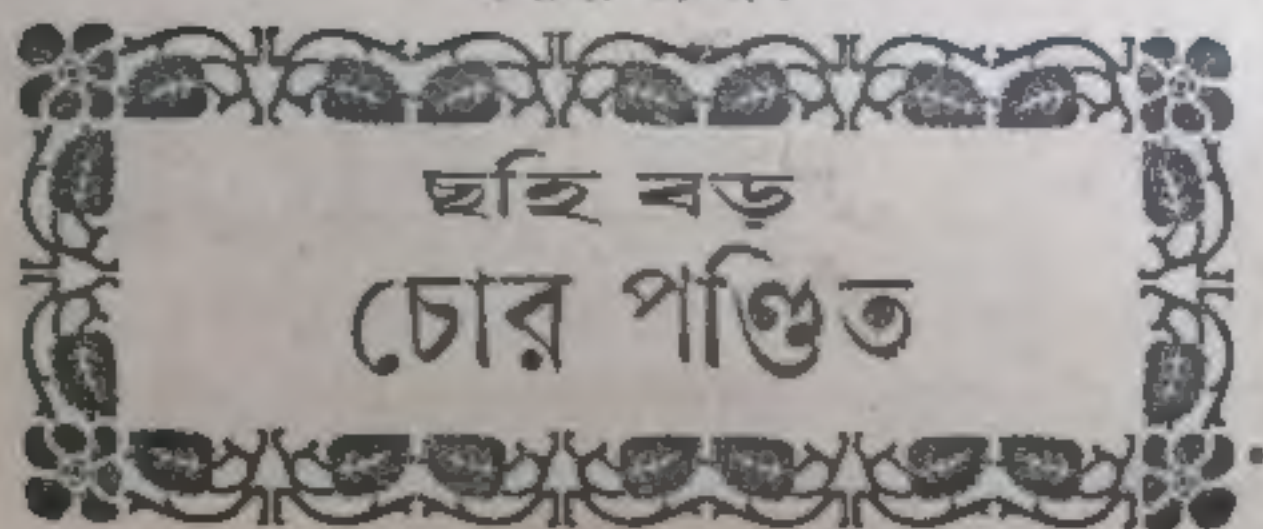 ছহি বড়
চোর পণ্ডিত